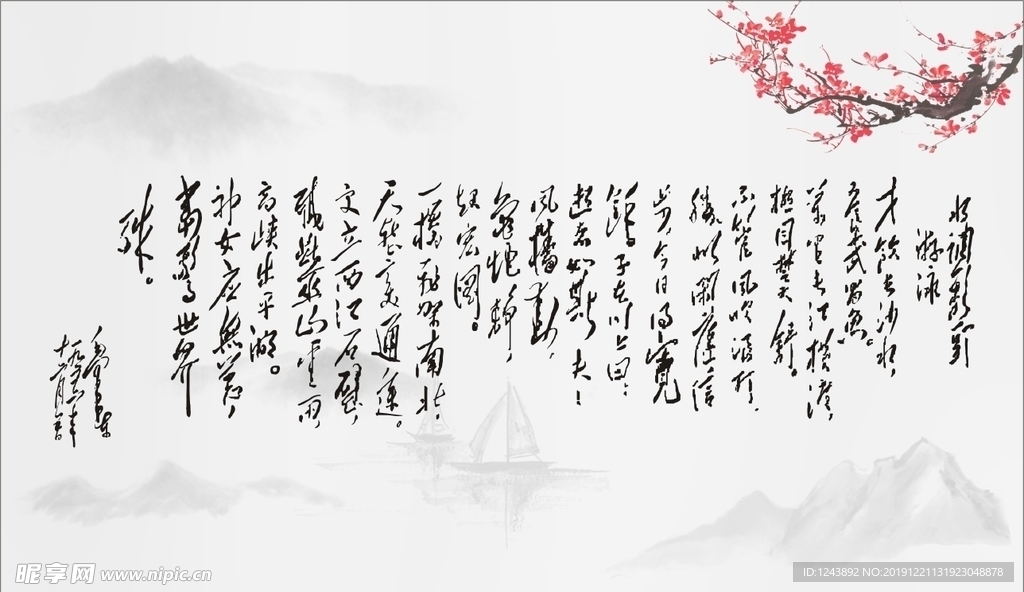 水调歌头
游泳
才饮长沙水，
又食武昌鱼。
万里长江横渡，
极目楚天舒。
不管风吹浪打，
胜似闲庭信
步，今日得宽
馀。子在川上曰：
逝者如斯夫！
风樯动，
龟蛇静，
起宏图。
一桥飞架南北，
天堑变通途。
更立西江石壁，
截断巫山云雨，
高峡出平湖。
神女应无恙，
当惊世界
殊。
毛泽东
一九五六年
十二月
昵享网 www.nipic.cn
ID:1243892 NO:20191221131923048878